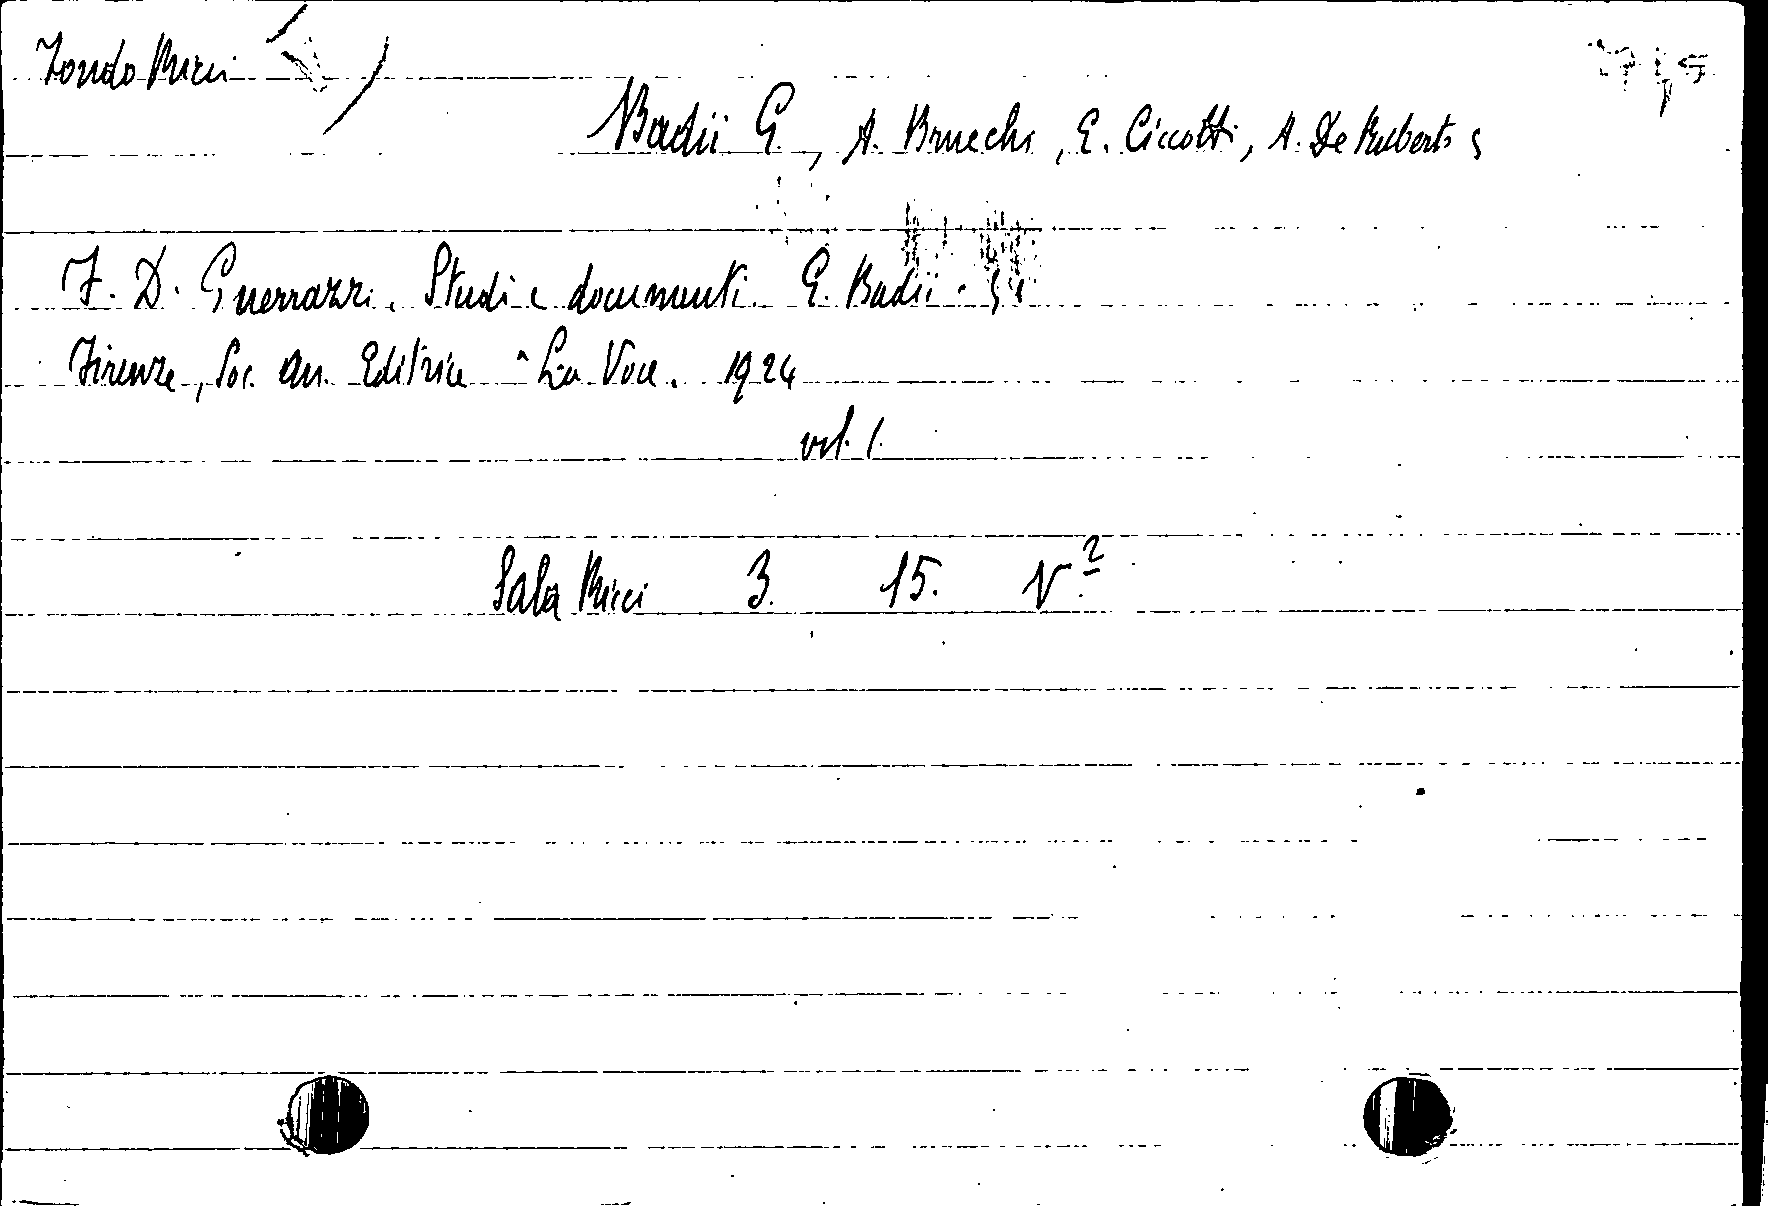 Fondo Ricci
Badii G., A. Bruechi, E. Ciccotti, A. De Rubertis
F. D. Guerrazzi. Studi e documenti. G. Badii.
Firenze, Soc. An. Editrice "La Voce. 1924
vol. 1.
Sala Ricci 3. 15. V 2